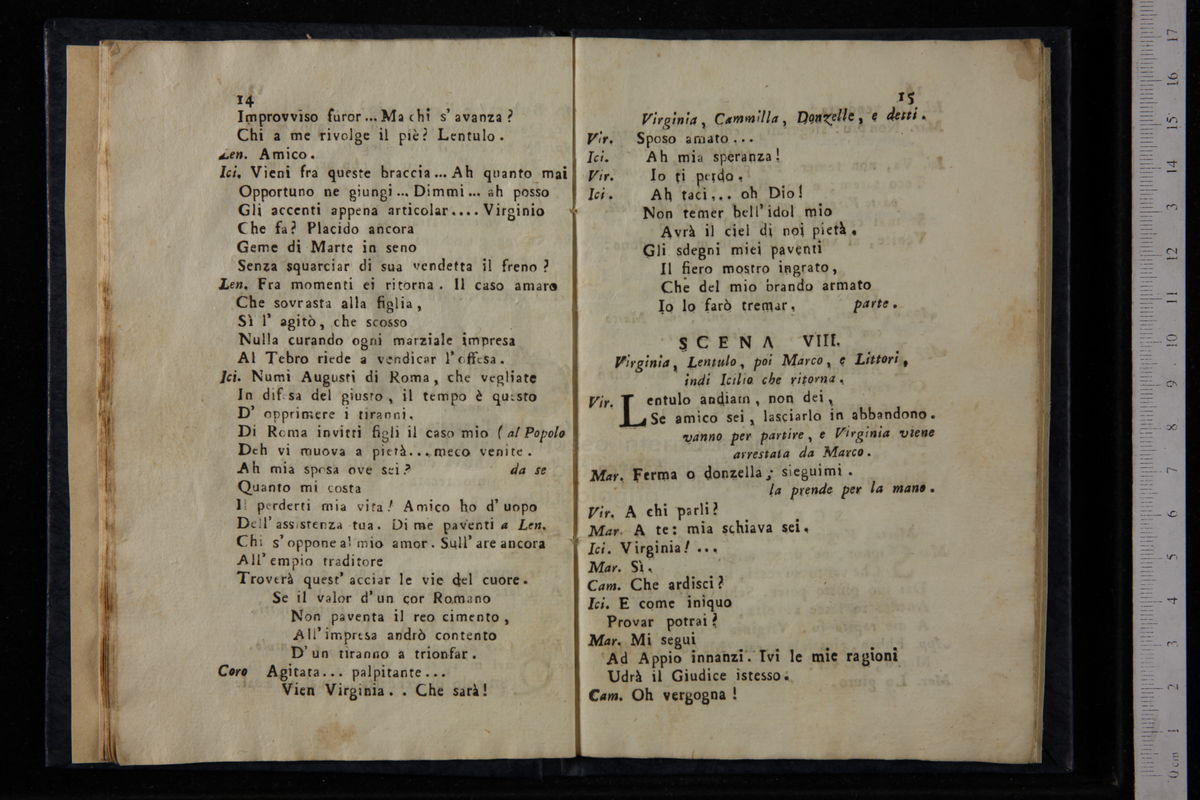 14
Improvviso furor ... Ma chi s' avanza ?
Chi a me rivolge il piè? Lentulo .
Len. Amico .
Ici. Vieni fra queste braccia ... Ah quanto mai
Opportuno ne giungi ... Dimmi ... ah posso
Gli accenti appena articolar .... Virginio
Che fa? Placido ancora
Geme di Marte in seno
Senza squarciar di sua vendetta il freno ?
Len. Fra momenti ei ritorna . Il caso amaro
Che sovrasta alla figlia ,
Sì l' agitò , che scosso
Nulla curando ogni marziale impresa
Al Tebro riede a vendicar l' offesa .
Ici. Numi Augusti di Roma , che vegliate
In difesa del giusto , il tempo è questo
D' opprimere i tiranni .
Di Roma invitti figli il caso mio ( al Popolo
Deh vi muova a pietà ... meco venite .
Ah mia sposa ove sei ? da se
Quanto mi costa
Il perderti mia vita ! Amico ho d' uopo
Dell' assistenza tua . Di me paventi a Len.
Chi s' oppone al mio amor . Sull' are ancora
All' empio traditore
Troverà quest' acciar le vie del cuore .
Se il valor d' un cor Romano
Non paventa il reo cimento ,
All' impresa andrò contento
D' un tiranno a trionfar .
Coro Agitata ... palpitante ...
Vien Virginia . . Che sarà !
15
Virginia , Cammilla , Donzelle , e detti .
Vir. Sposo amato ...
Ici. Ah mia speranza !
Vir. Io ti perdo .
Ici. Ah taci ... oh Dio !
Non temer bell' idol mio
Avrà il ciel di noi pietà .
Gli sdegni miei paventi
Il fiero mostro ingrato ,
Che del mio brando armato
Io lo farò tremar . parte .
SCENA VIII.
Virginia , Lentulo , poi Marco , e Littori ,
indi Icilio che ritorna .
Vir. Lentulo andiam , non dei ,
Se amico sei , lasciarlo in abbandono .
vanno per partire , e Virginia viene
arrestata da Marco .
Mar. Ferma o donzella ; sieguimi .
la prende per la mano .
Vir. A chi parli ?
Mar. A te : mia schiava sei .
Ici. Virginia ! ...
Mar. Sì .
Cam. Che ardisci ?
Ici. E come iniquo
Provar potrai ?
Mar. Mi segui
Ad Appio innanzi . Ivi le mie ragioni
Udrà il Giudice istesso .
Cam. Oh vergogna !
0 cm 1 2 3 4 5 6 7 8 9 10 11 12 13 14 15 16 17